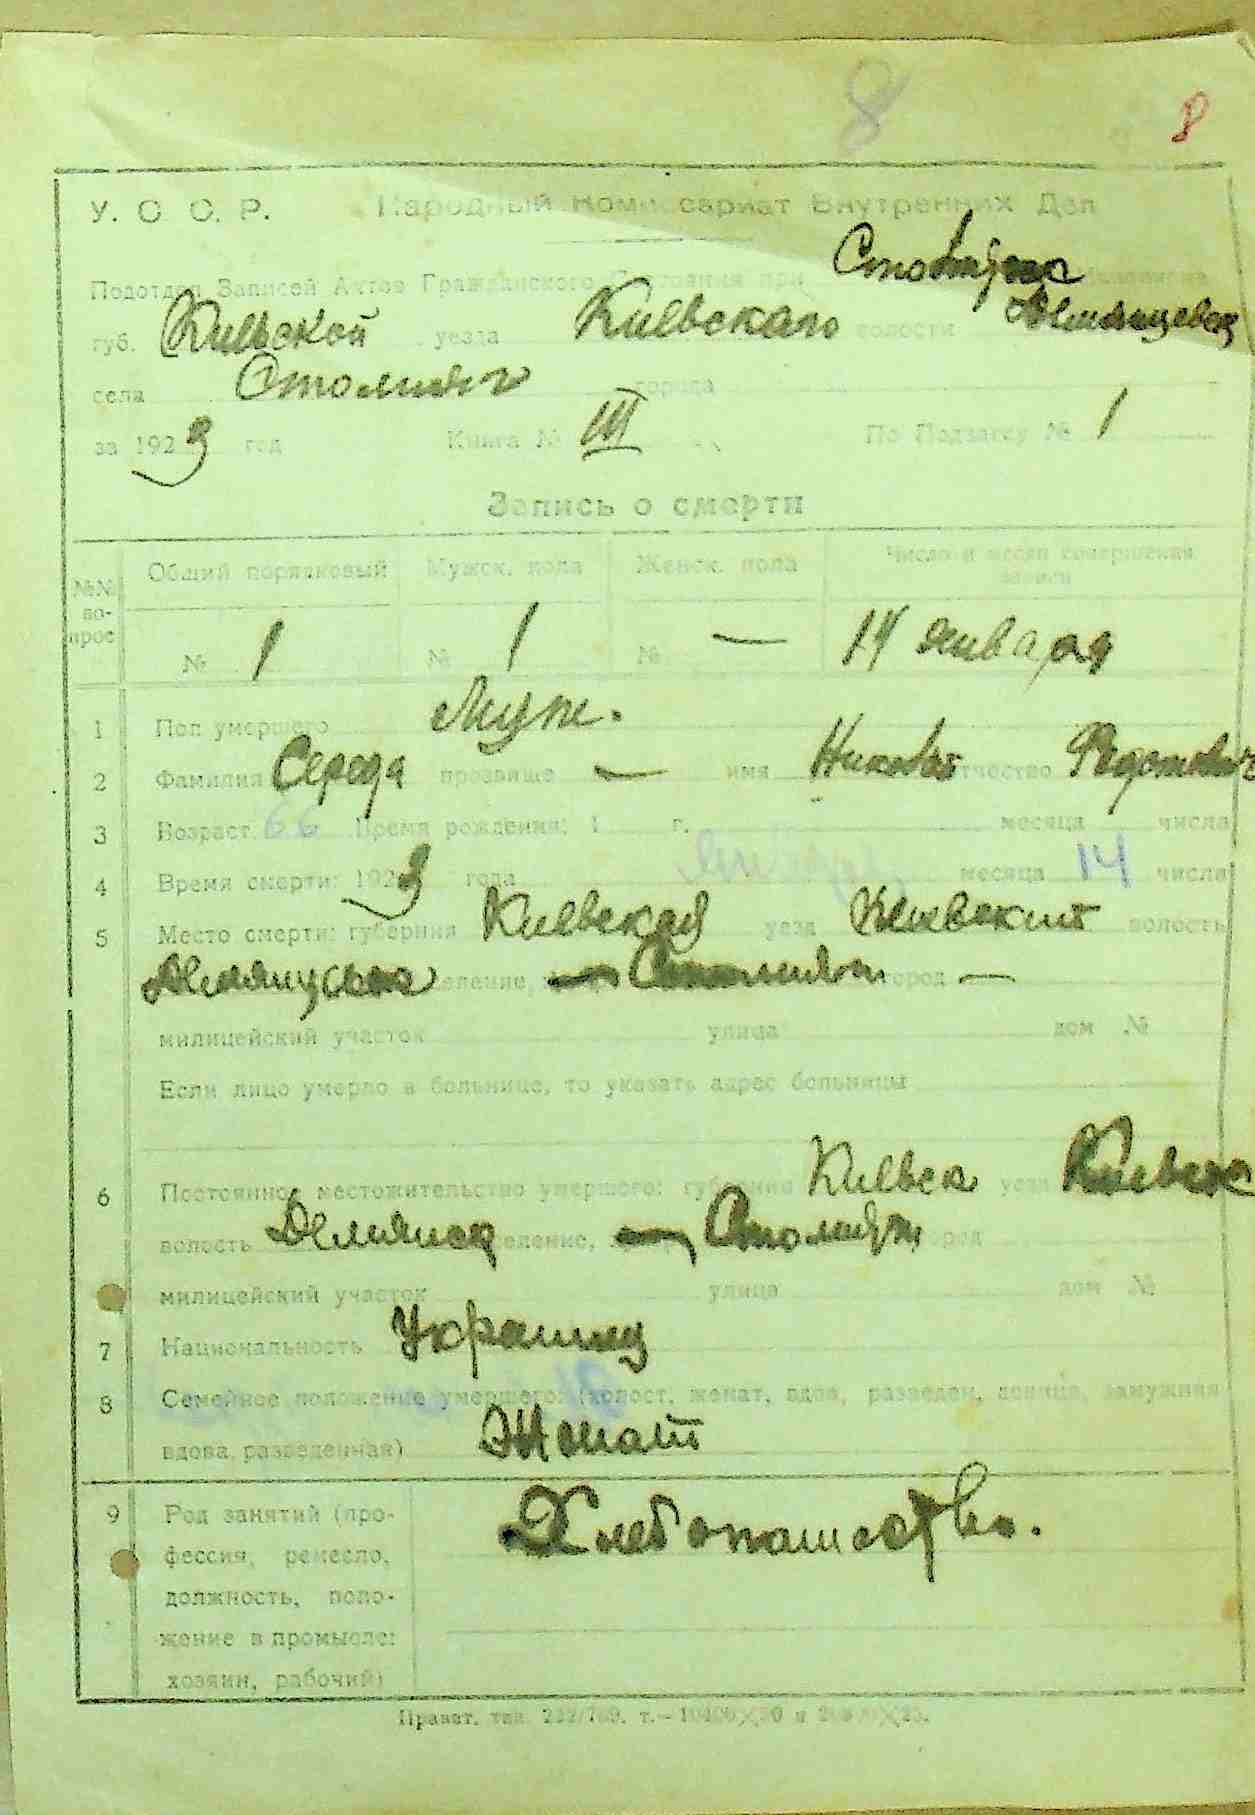 8 8
У. С. С. Р. Народный Комиссариат Внутренних Дел
Подотдел Записей Актов Гражданского Состояния при
губ. Киевской уезда Киевскаго волости
села города
за 1923 год Книга № III По Подзагсу № 1
Запись о смерти
№№ вопрос Общий порядковый Мужск. пола Женск. пола Число и месяц совершения записи
№ 1 № 1 № — 14 января
1 Пол умершего Муж.
2 Фамилия Середа прозвище — имя отчество
3 Возраст 66 Время рождения: 1 г. месяца числа
4 Время смерти: 1923 года января месяца 14 числа
5 Место смерти: губерния Киевская уезд Киевский волость
селение, город —
милицейский участок улица дом №
Если лицо умерло в больнице, то указать адрес больницы
6 Постоянное местожительство умершего: губерния Киевск уезд Киевск
волость селение, город
милицейский участок улица дом №
7 Национальность Украинец
8 Семейное положение умершего: (холост, женат, вдов, разведен, девица, замужняя
вдова, разведенная) Женат
9 Род занятий (про- Хлебопашество.
фессия, ремесло,
должность, поло-
жение в промысле:
хозяин, рабочий)